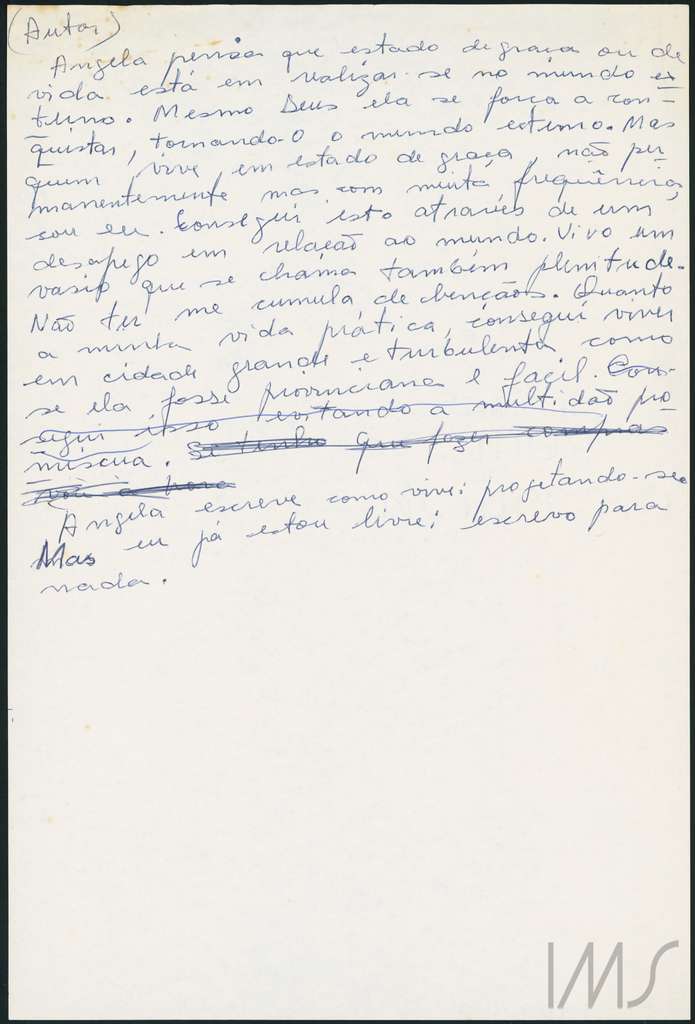 (Autor)
Angela pensa que estado de graça ou de
vida está em realizar-se no mundo ex-
terno. Mesmo Deus ela se força a con-
quistar, tornando-O o mundo externo. Mas
quem vive em estado de graça, não per
manentemente mas com muita frequência,
sou eu. Consegui isto através de um
desapego em relação ao mundo. Vivo um
vasio que se chama também plenitude.
Não ter me cumula de bençãos. Quanto
a minha vida prática, consegui viver
em cidade grande e turbulenta como
se ela fosse provinciana e facil. Con-
segui isso evitando a multidão pro
míscua. Se tenho que fazer compras
vou a
Angela escreve como vive: projetando-se.
Mas eu já estou livre: escrevo para
nada.
IMS